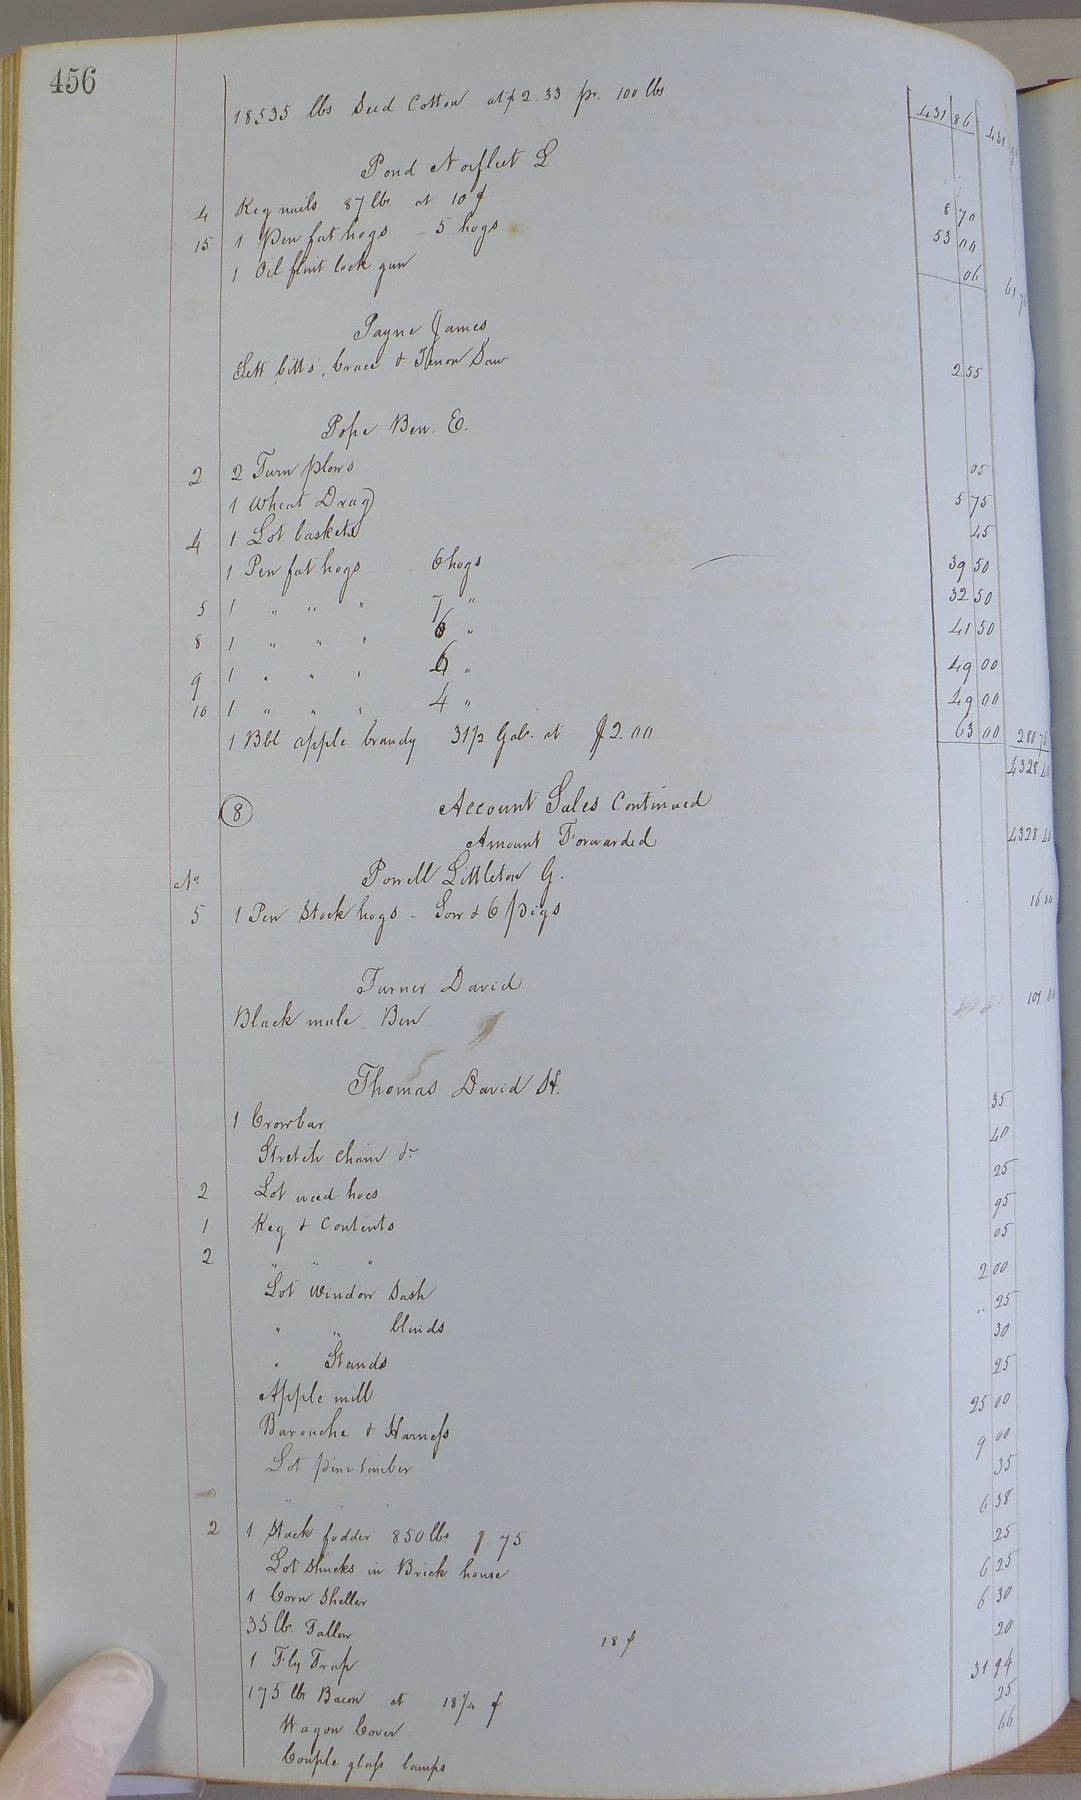 456
18535 lbs Seed Cotton at $2.33 pr. 100 lbs 431 86 431
Pond Norfleet L
4 Keg nails 87 lbs at 10 ¢ 8 70
15 1 Pen fat hogs - 5 hogs 53 00
1 Oil flint lock gun 06 61 76
Payne James
Sett bitts, brace & Tenon Saw 2 55
Pope Ben. E.
2 2 Turn plows 05
1 Wheat Drag 5 75
4 1 Lot baskets 45
1 Pen fat hogs 6 hogs 39 50
5 1 " " " 7 " 32 50
8 1 " " " 6 " 41 50
9 1 " " " 6 " 49 00
10 1 " " " 4 " 49 00
1 Bbl apple brandy 31½ Gals. at $2.00 63 00 280 75
4328 40
8 Account Sales Continued
Amount Forwarded 4328 40
No. Powell Littleton G.
5 1 Pen Stock hogs - Sow & 6 pigs 16 00
Turner David
Black mule Ben 107 00
Thomas David H.
1 Crowbar 35
Stretch chain &c 40
2 Lot weed hoes 25
1 Keg & Contents 95
2 " " " 05
Lot Window Sash 2 00
" " blinds " 25
" Stands 30
Apple mill 25
Barouche & Harness 25 00
Lot pine timber 9 00
35
2 1 Stack fodder 850 lbs 75 6 38
Lot Shucks in Brick house 25
1 Corn Sheller 6 25
35 lb. Tallow 18 ¢ 6 30
1 Fly Trap 20
175 lbs Bacon at 18¼ ¢ 31 94
Wagon Cover 25
Couple glass lamps 66